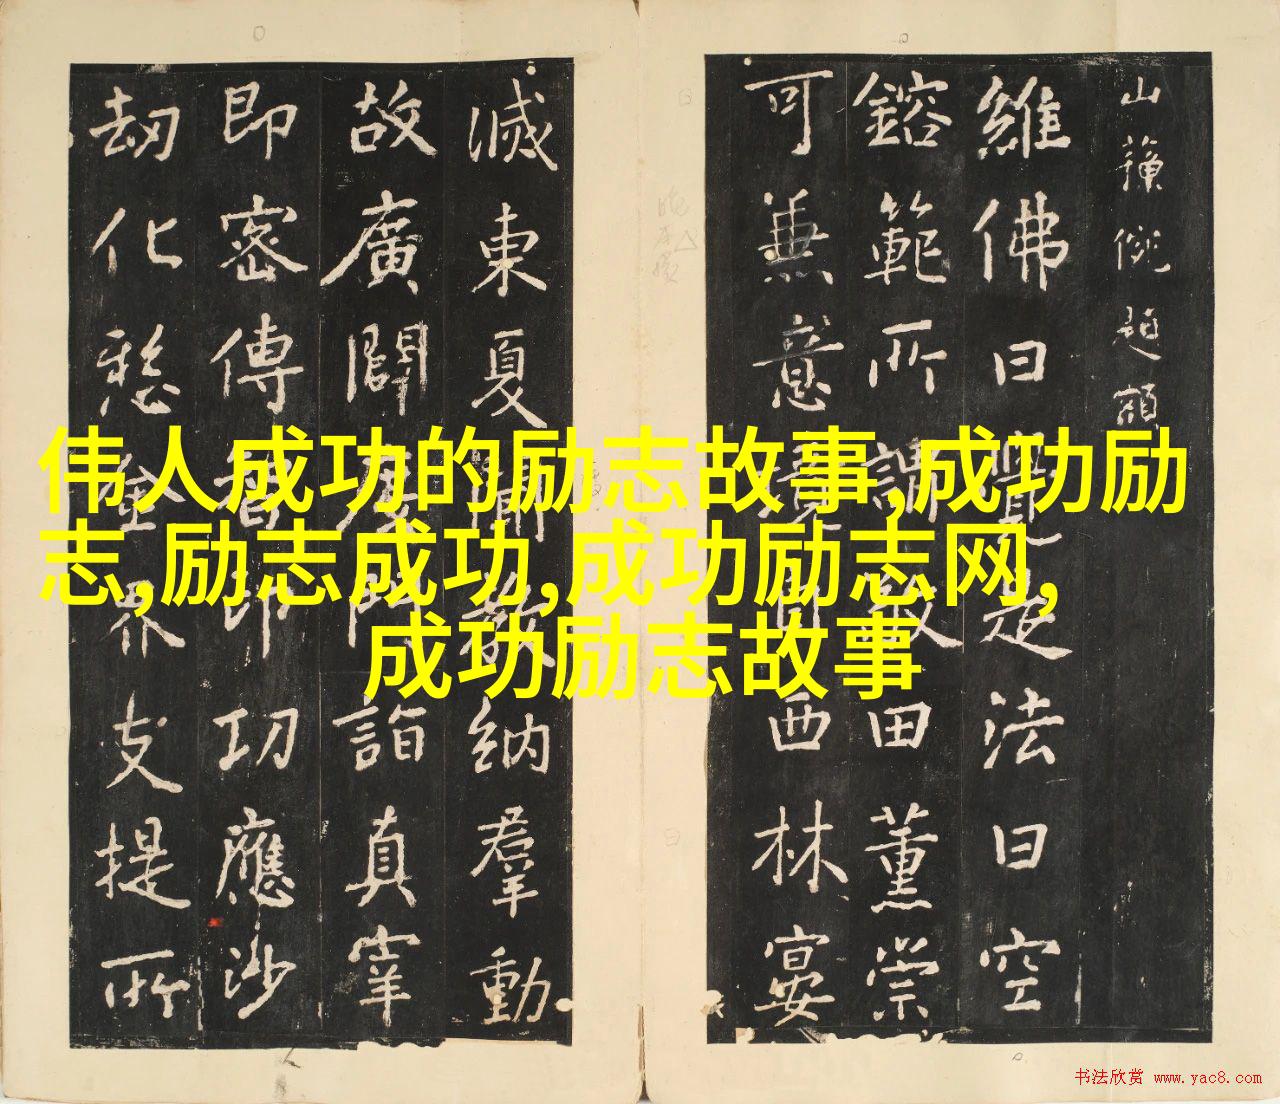 伟人成功的励志故事,成功励
志,励志成功,成功励志网,
成功励志故事
維佛日是法日空
鎔範所謂田薰崇
可兼意西林宴
滅東夏教納羣動
故廣闢門詣真宰
即密傳印功應沙
劫化慈金界支提所
书法欣赏 www.yac8.com